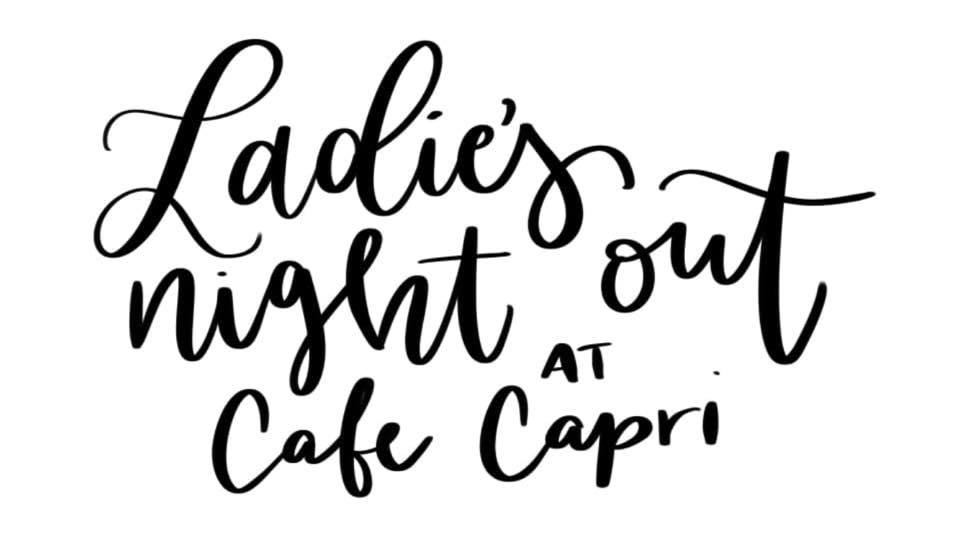 Ladie's
night out
AT
Cafe Capri